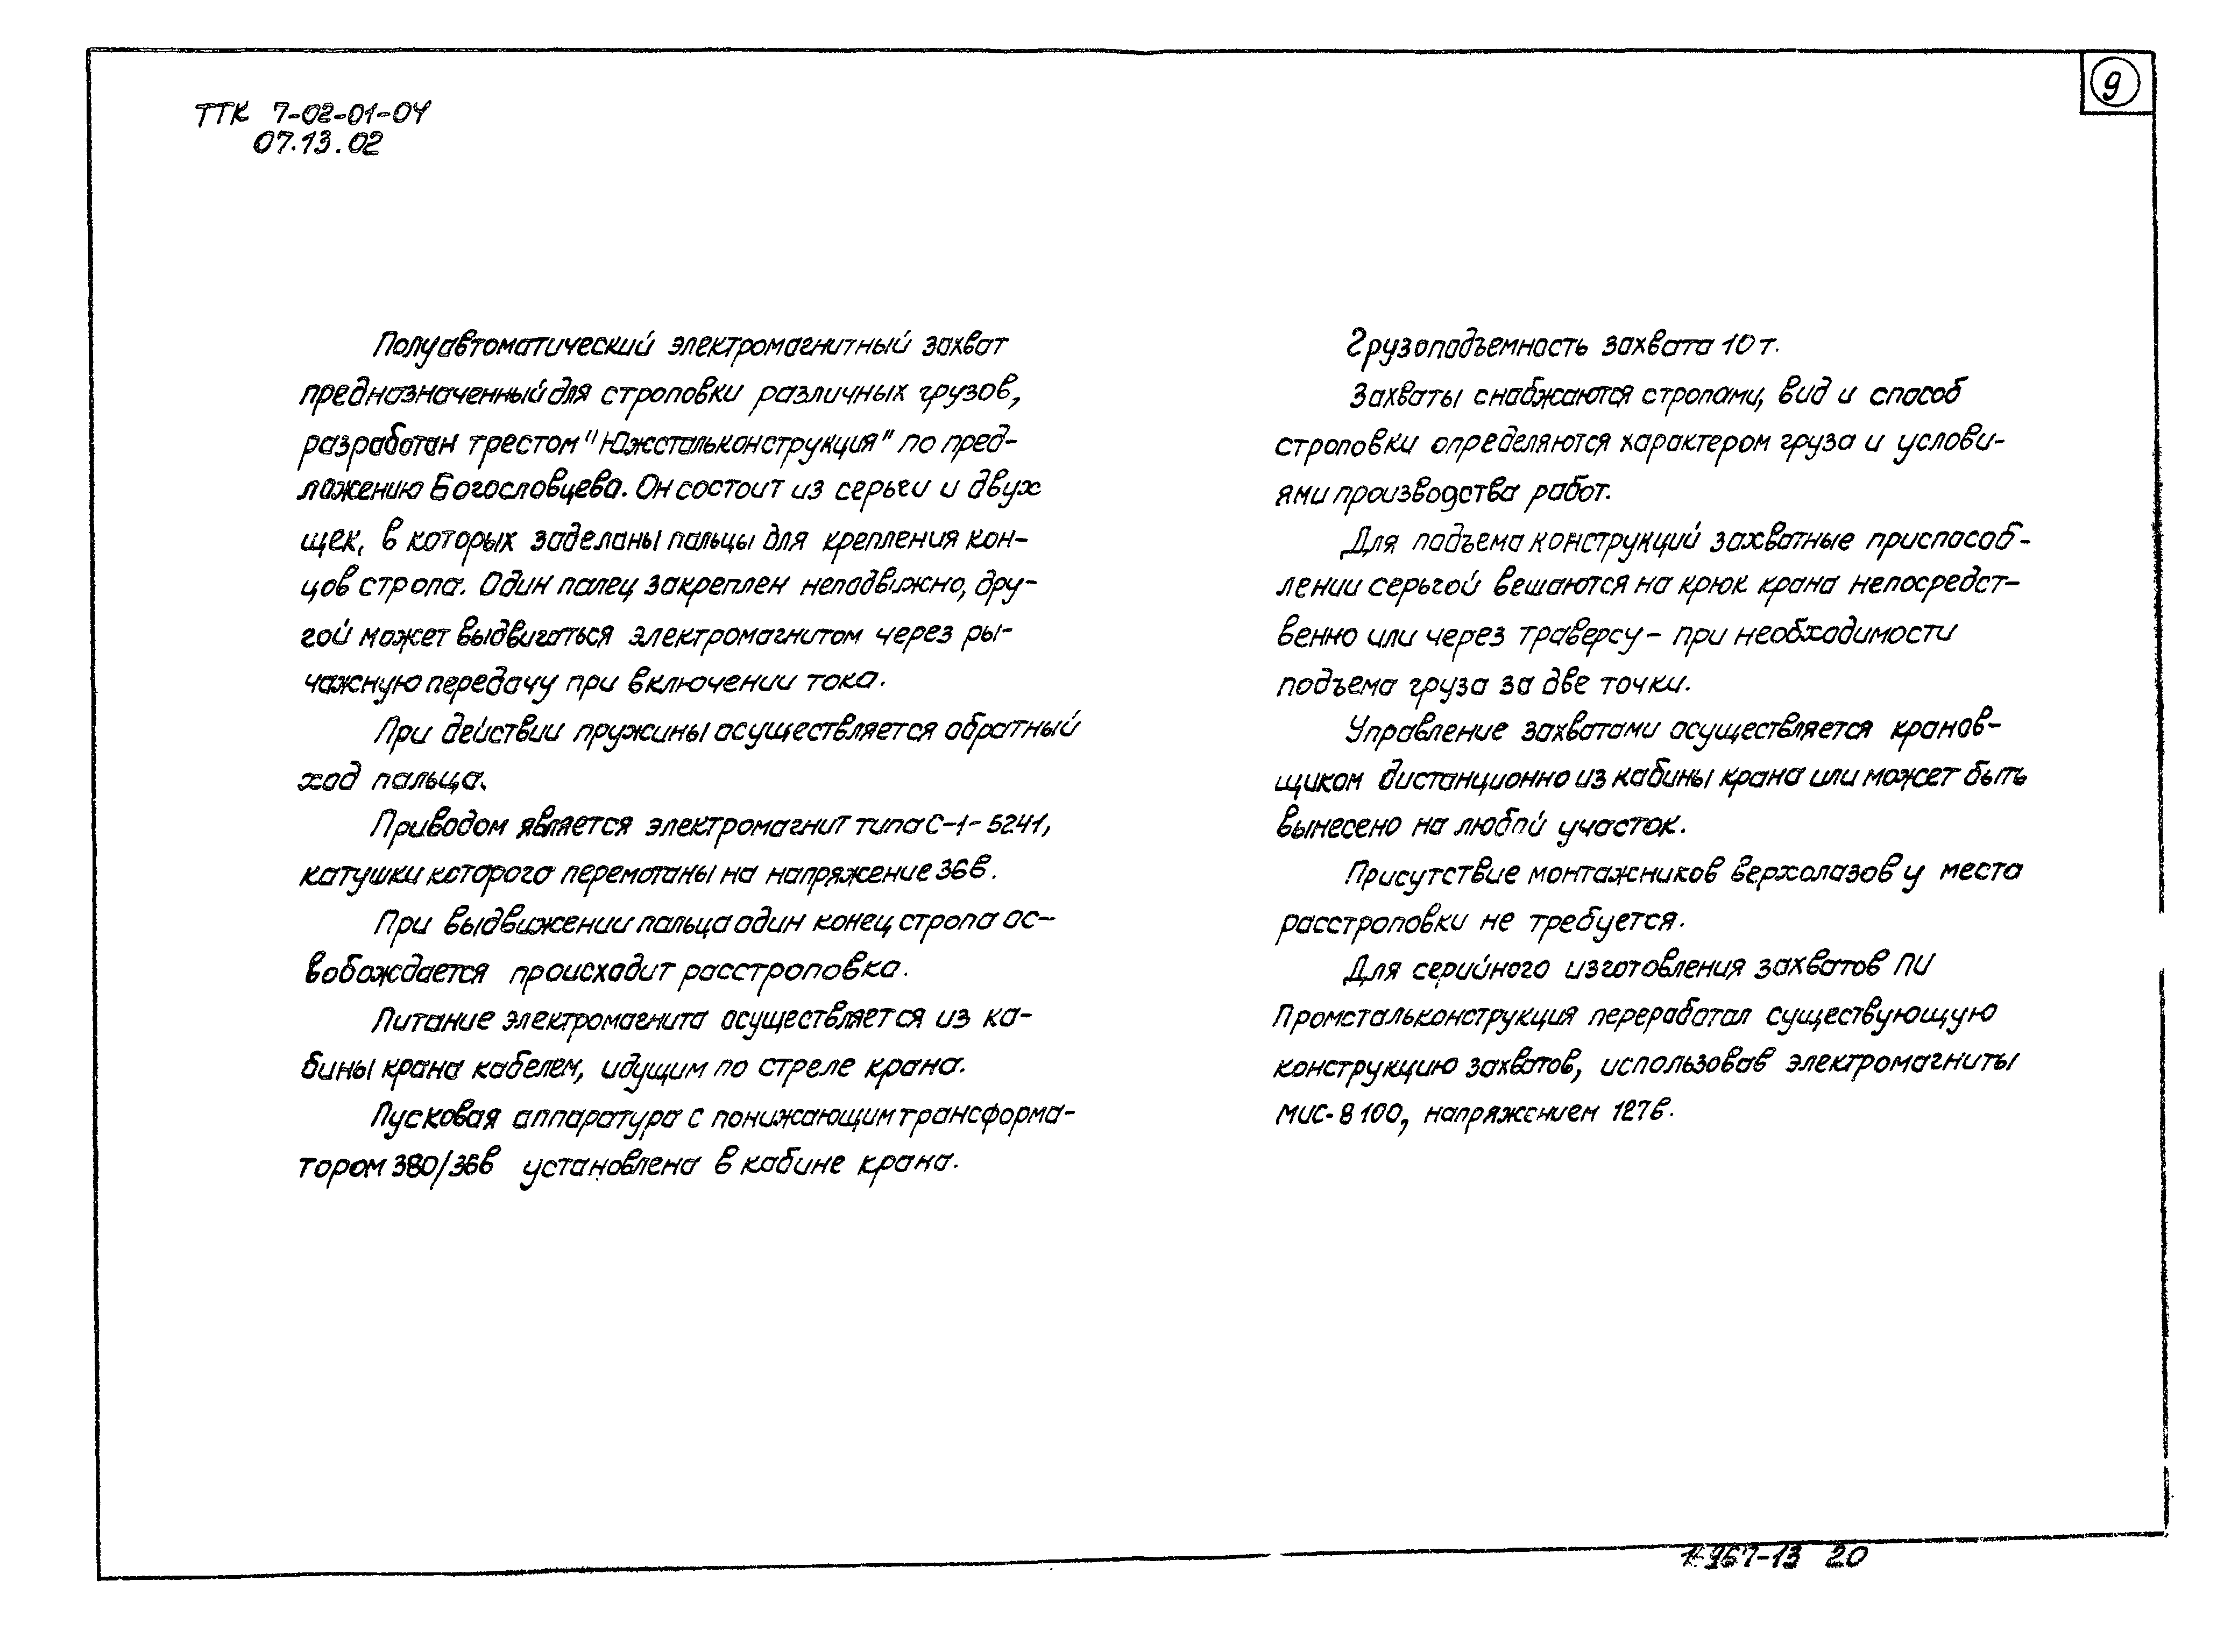 9
ТТК 7-02-01-04
07.13.02
Полуавтоматический электромагнитный захват
предназначенный для строповки различных грузов,
разработан трестом "Южстальконструкция" по пред-
ложению Богословцева. Он состоит из серьги и двух
щек, в которых заделаны пальцы для крепления кон-
цов стропа. Один палец закреплен неподвижно, дру-
гой может выдвигаться электромагнитом через ры-
чажную передачу при включении тока.
При действии пружины осуществляется обратный
ход пальца.
Приводом является электромагнит типа С-1-5241,
катушки которого перемотаны на напряжение 36в.
При выдвижении пальца один конец стропа ос-
вобождается происходит расстроповка.
Питание электромагнита осуществляется из ка-
бины крана кабелем, идущим по стреле крана.
Пусковая аппаратура с понижающим трансформа-
тором 380/36в установлена в кабине крана.
Грузоподъемность захвата 10т.
Захваты снабжаются стропами, вид и способ
строповки определяются характером груза и услови-
ями производства работ.
Для подъема конструкций захватные приспособ-
лении серьгой вешаются на крюк крана непосредст-
венно или через траверсу - при необходимости
подъема груза за две точки.
Управление захватами осуществляется кранов-
щиком дистанционно из кабины крана или может быть
вынесено на любой участок.
Присутствие монтажников верхолазов у места
расстроповки не требуется.
Для серийного изготовления захватов ПИ
Промстальконструкция переработал существующую
конструкцию захватов, использовав электромагниты
МИС-8100, напряжением 127в.
20